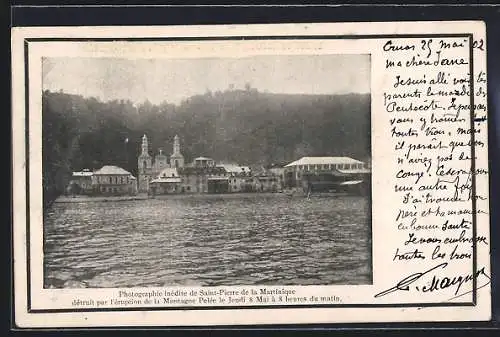 Photographie inédite de Saint-Pierre de la Martinique
détruit par l'éruption de la Montagne Pelée le Jeudi 8 Mai à 8 heures du matin.
25 mai 02
ma chère Jane
Je suis allé voir tes
parents le monde de
Pentecôte. Je pensais
vous y trouver
toutes trois, mais
il parait que vous
n'avez pas de
congé. Ce sera
une autre fois
J'ai trouvé ton
père et ta maman
en bonne santé
Je vous embrasse
toutes les trois